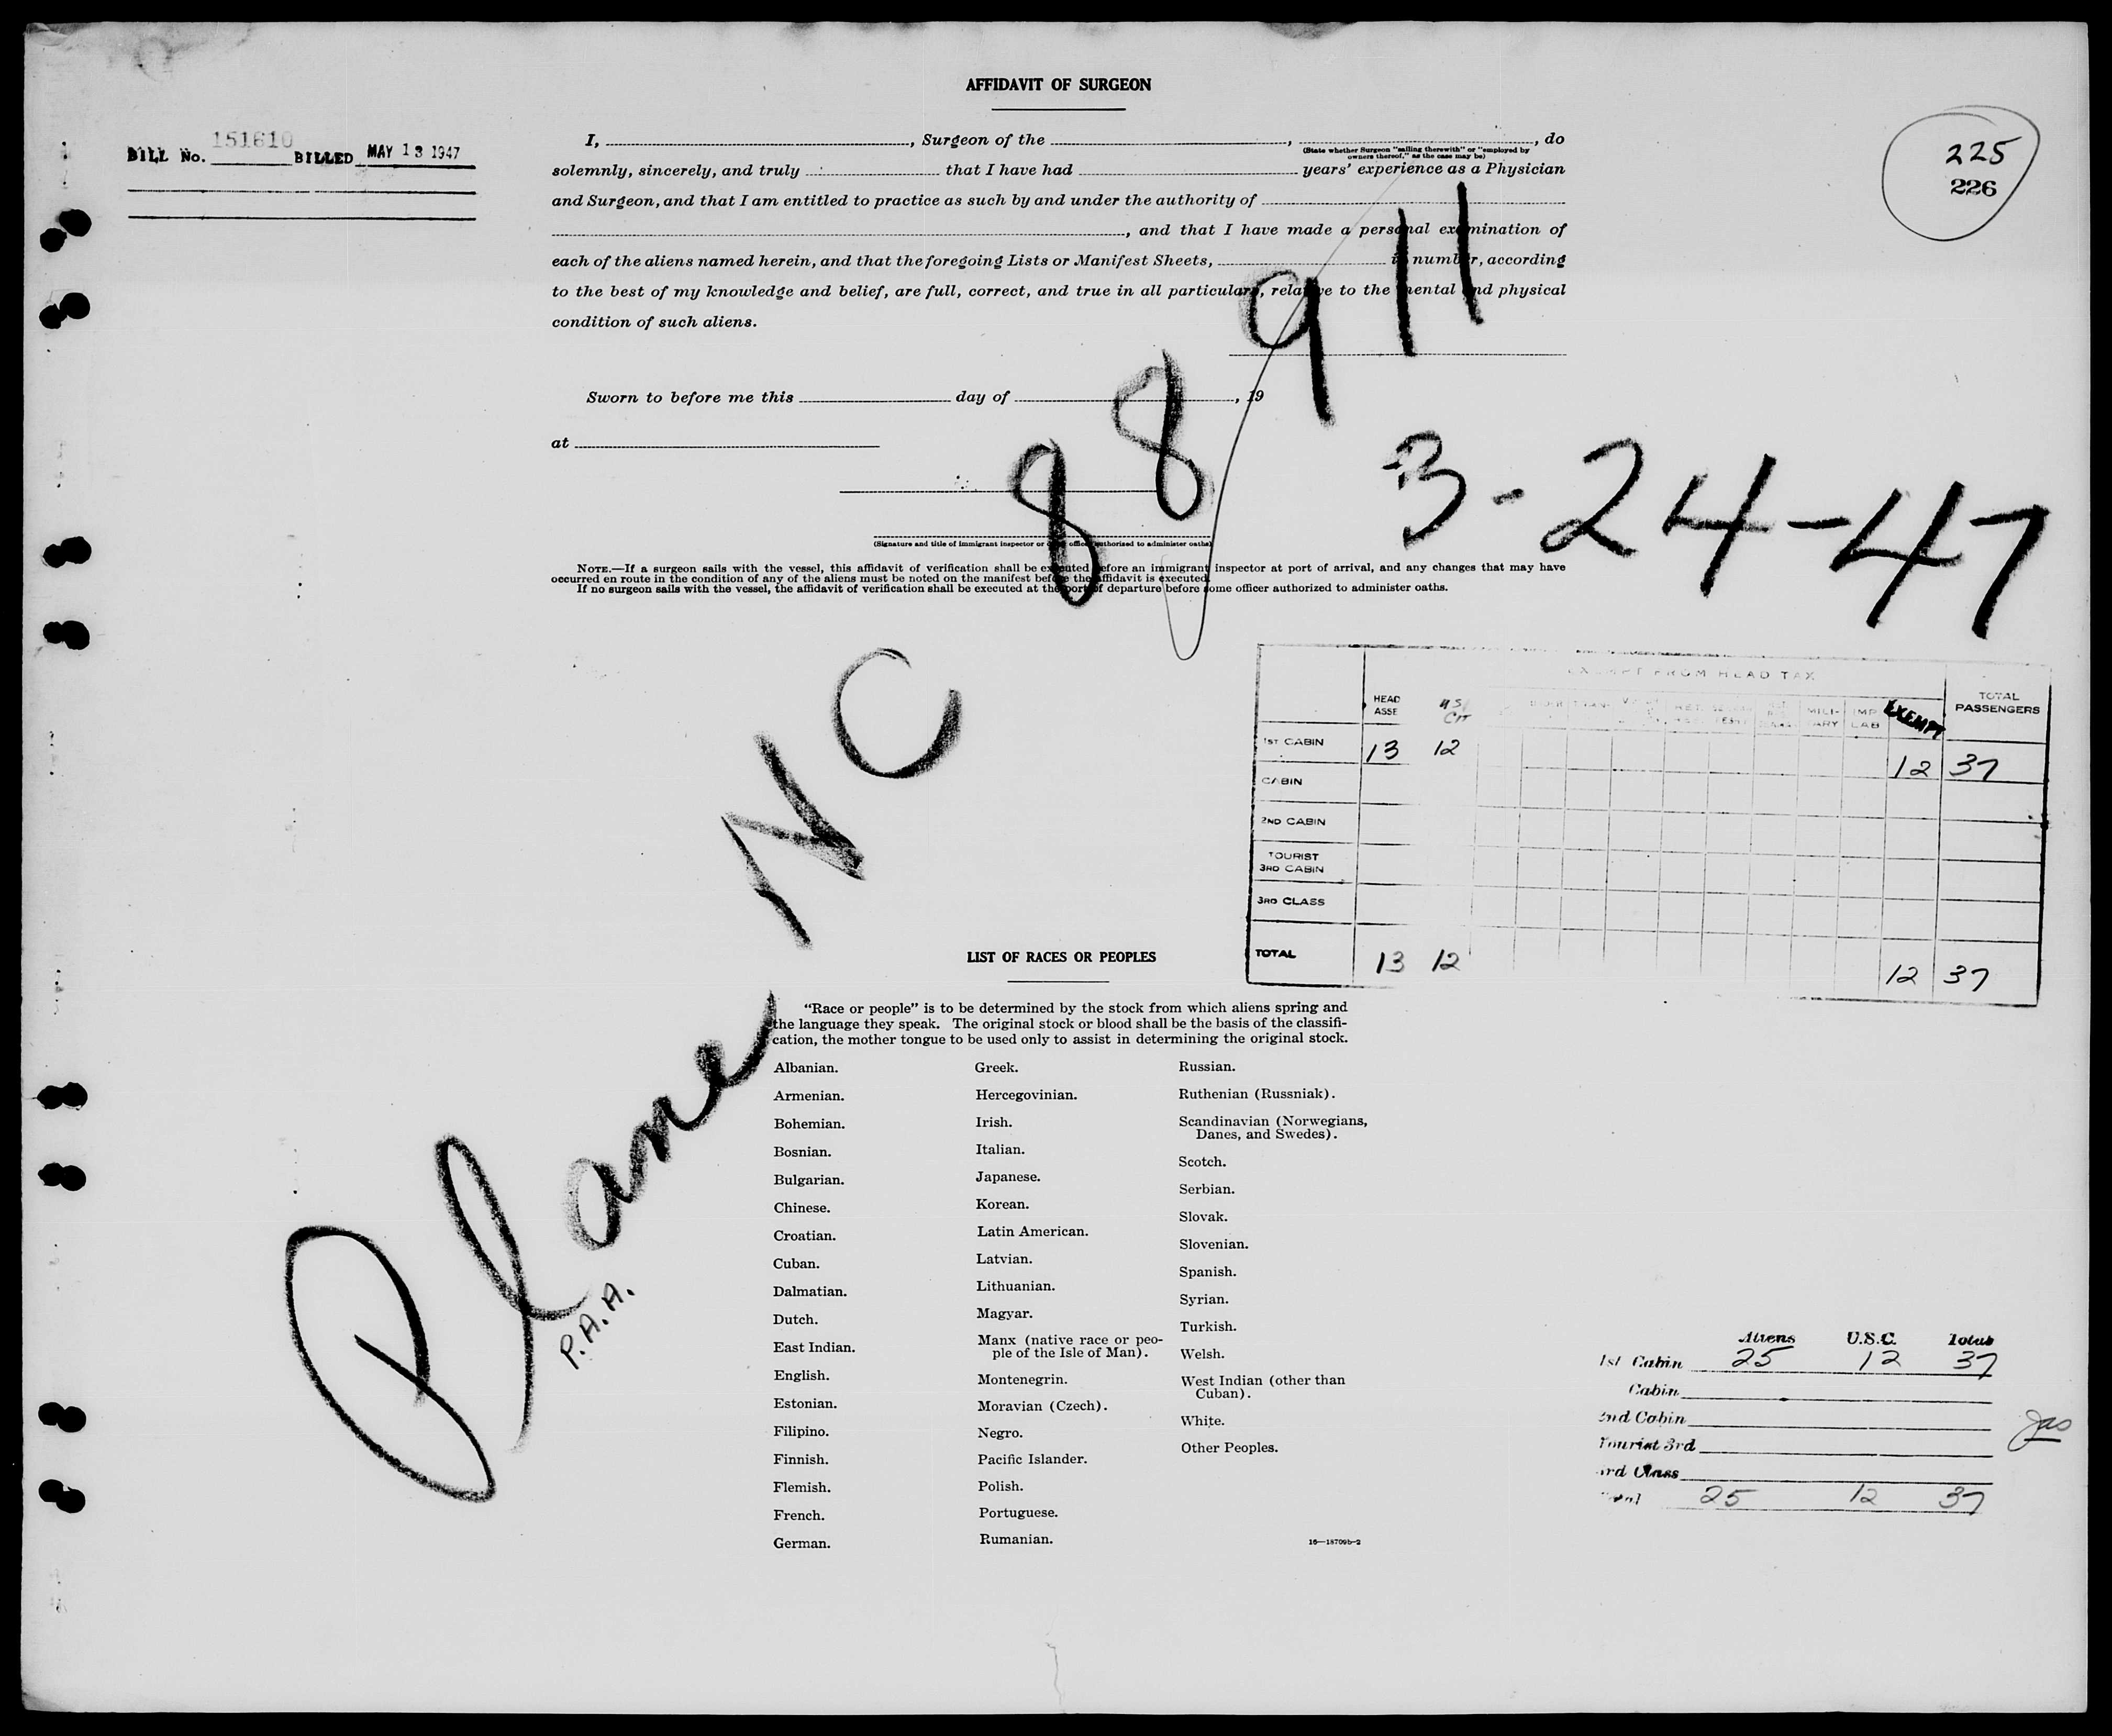 AFFIDAVIT OF SURGEON
BILL No. 151610 BILLED MAY 13 1947
225
226
I, , Surgeon of the , , do
(State whether Surgeon "sailing therewith" or "employed by
owners thereof," as the case may be)
solemnly, sincerely, and truly that I have had years' experience as a Physician
and Surgeon, and that I am entitled to practice as such by and under the authority of
, and that I have made a personal examination of
each of the aliens named herein, and that the foregoing Lists or Manifest Sheets, in number, according
to the best of my knowledge and belief, are full, correct, and true in all particulars, relative to the mental and physical
condition of such aliens.
Sworn to before me this day of , 19
at
(Signature and title of immigrant inspector or other officer authorized to administer oaths)
NOTE.—If a surgeon sails with the vessel, this affidavit of verification shall be executed before an immigrant inspector at port of arrival, and any changes that may have
occurred en route in the condition of any of the aliens must be noted on the manifest before the affidavit is executed.
If no surgeon sails with the vessel, the affidavit of verification shall be executed at the port of departure before some officer authorized to administer oaths.
Plane NC 88911
P.A.A.
3-24-47
EXEMPT FROM HEAD TAX
HEAD
ASSE
USC
CIT
MILI-
ARY
IMP
LAB
EXEMPT
TOTAL
PASSENGERS
1ST CABIN 13 12 12 37
CABIN
2ND CABIN
TOURIST
3RD CABIN
3RD CLASS
TOTAL 13 12 12 37
LIST OF RACES OR PEOPLES
"Race or people" is to be determined by the stock from which aliens spring and
the language they speak. The original stock or blood shall be the basis of the classifi-
cation, the mother tongue to be used only to assist in determining the original stock.
Albanian.
Armenian.
Bohemian.
Bosnian.
Bulgarian.
Chinese.
Croatian.
Cuban.
Dalmatian.
Dutch.
East Indian.
English.
Estonian.
Filipino.
Finnish.
Flemish.
French.
German.
Greek.
Hercegovinian.
Irish.
Italian.
Japanese.
Korean.
Latin American.
Latvian.
Lithuanian.
Magyar.
Manx (native race or peo-
ple of the Isle of Man).
Montenegrin.
Moravian (Czech).
Negro.
Pacific Islander.
Polish.
Portuguese.
Rumanian.
Russian.
Ruthenian (Russniak).
Scandinavian (Norwegians,
Danes, and Swedes).
Scotch.
Serbian.
Slovak.
Slovenian.
Spanish.
Syrian.
Turkish.
Welsh.
West Indian (other than
Cuban).
White.
Other Peoples.
16—18709b-2
Aliens U.S.C. Total
1st Cabin 25 12 37
Cabin
2nd Cabin
Tourist 3rd
3rd Class
Total 25 12 37
Jas